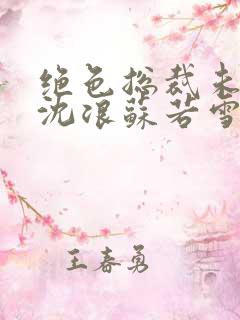 绝色总裁未
沈浪苏若雪
王春勇